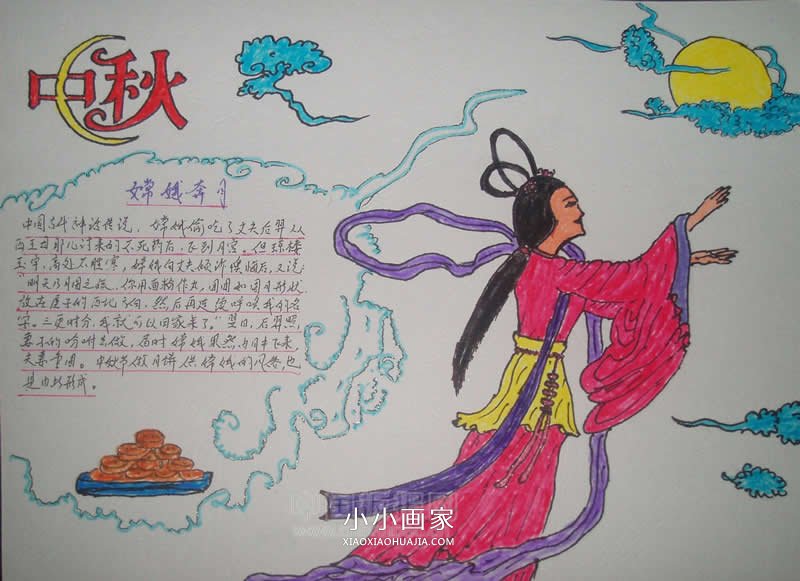 中秋
嫦娥奔月
中国古代神话传说，嫦娥偷吃了丈夫后羿从
西王母那儿讨来的不死药后，飞到月宫。但琼楼
玉宇，高处不胜寒，嫦娥向丈夫倾诉懊悔后，又说：
"明天乃月圆之候，你用面粉作丸，团团如圆月形状，
放在屋子的西北方向，然后再连续呼唤我的名
字。三更时分，我就可以回家来了。"翌日，后羿照
妻子的吩咐去做，届时嫦娥果然由月中飞来，
夫妻重圆。中秋节做月饼供嫦娥的风俗，也
是由此形成。
小小画家
XIAOXIAOHUAJIA.COM